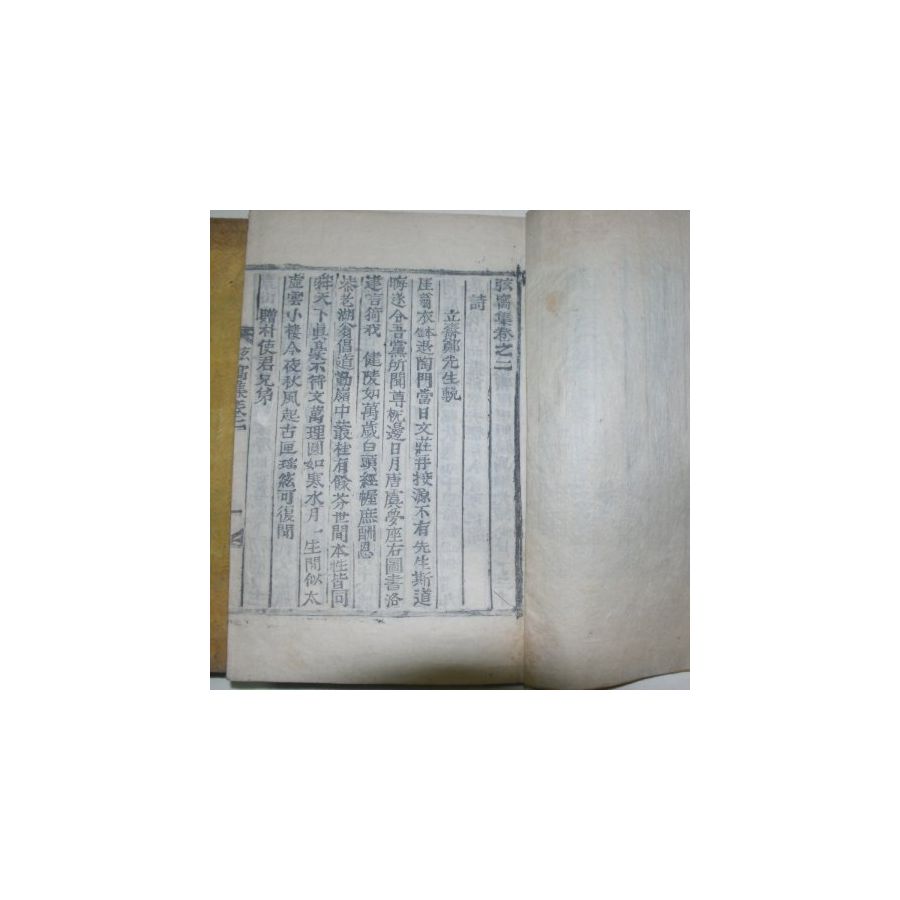 弦窩集卷之二
詩
立齋鄭先生輓
厓翁衣鉢退陶門當日文莊再授源不有先生斯道
晦遂令吾黨所聞尊枕邊日月唐虞夢座右圖書洛
建言猗我 健陵如萬歲白頭經幄庶酬恩
老湖翁倡道勤廟中叢桂有餘芬世間本性皆同
舜天下眞豪不待文萬理圓如寒水月一生閒似太
虛雲小樓今夜秋風起古匣瑤絃可復聞
贈村使君兄弟
弦窩集卷二
一